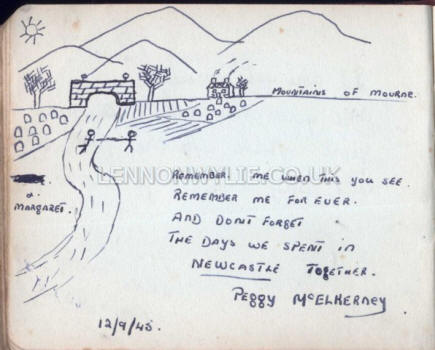 MOUNTAINS OF MOURNE.
LENNONWYLIE.CO.UK
REMEMBER ME WHEN THIS YOU SEE.
REMEMBER ME FOR EVER.
AND DONT FORGET
THE DAYS WE SPENT IN
NEWCASTLE TOGETHER.
PEGGY McELKERNEY
&
MARGARET.
12/9/45.